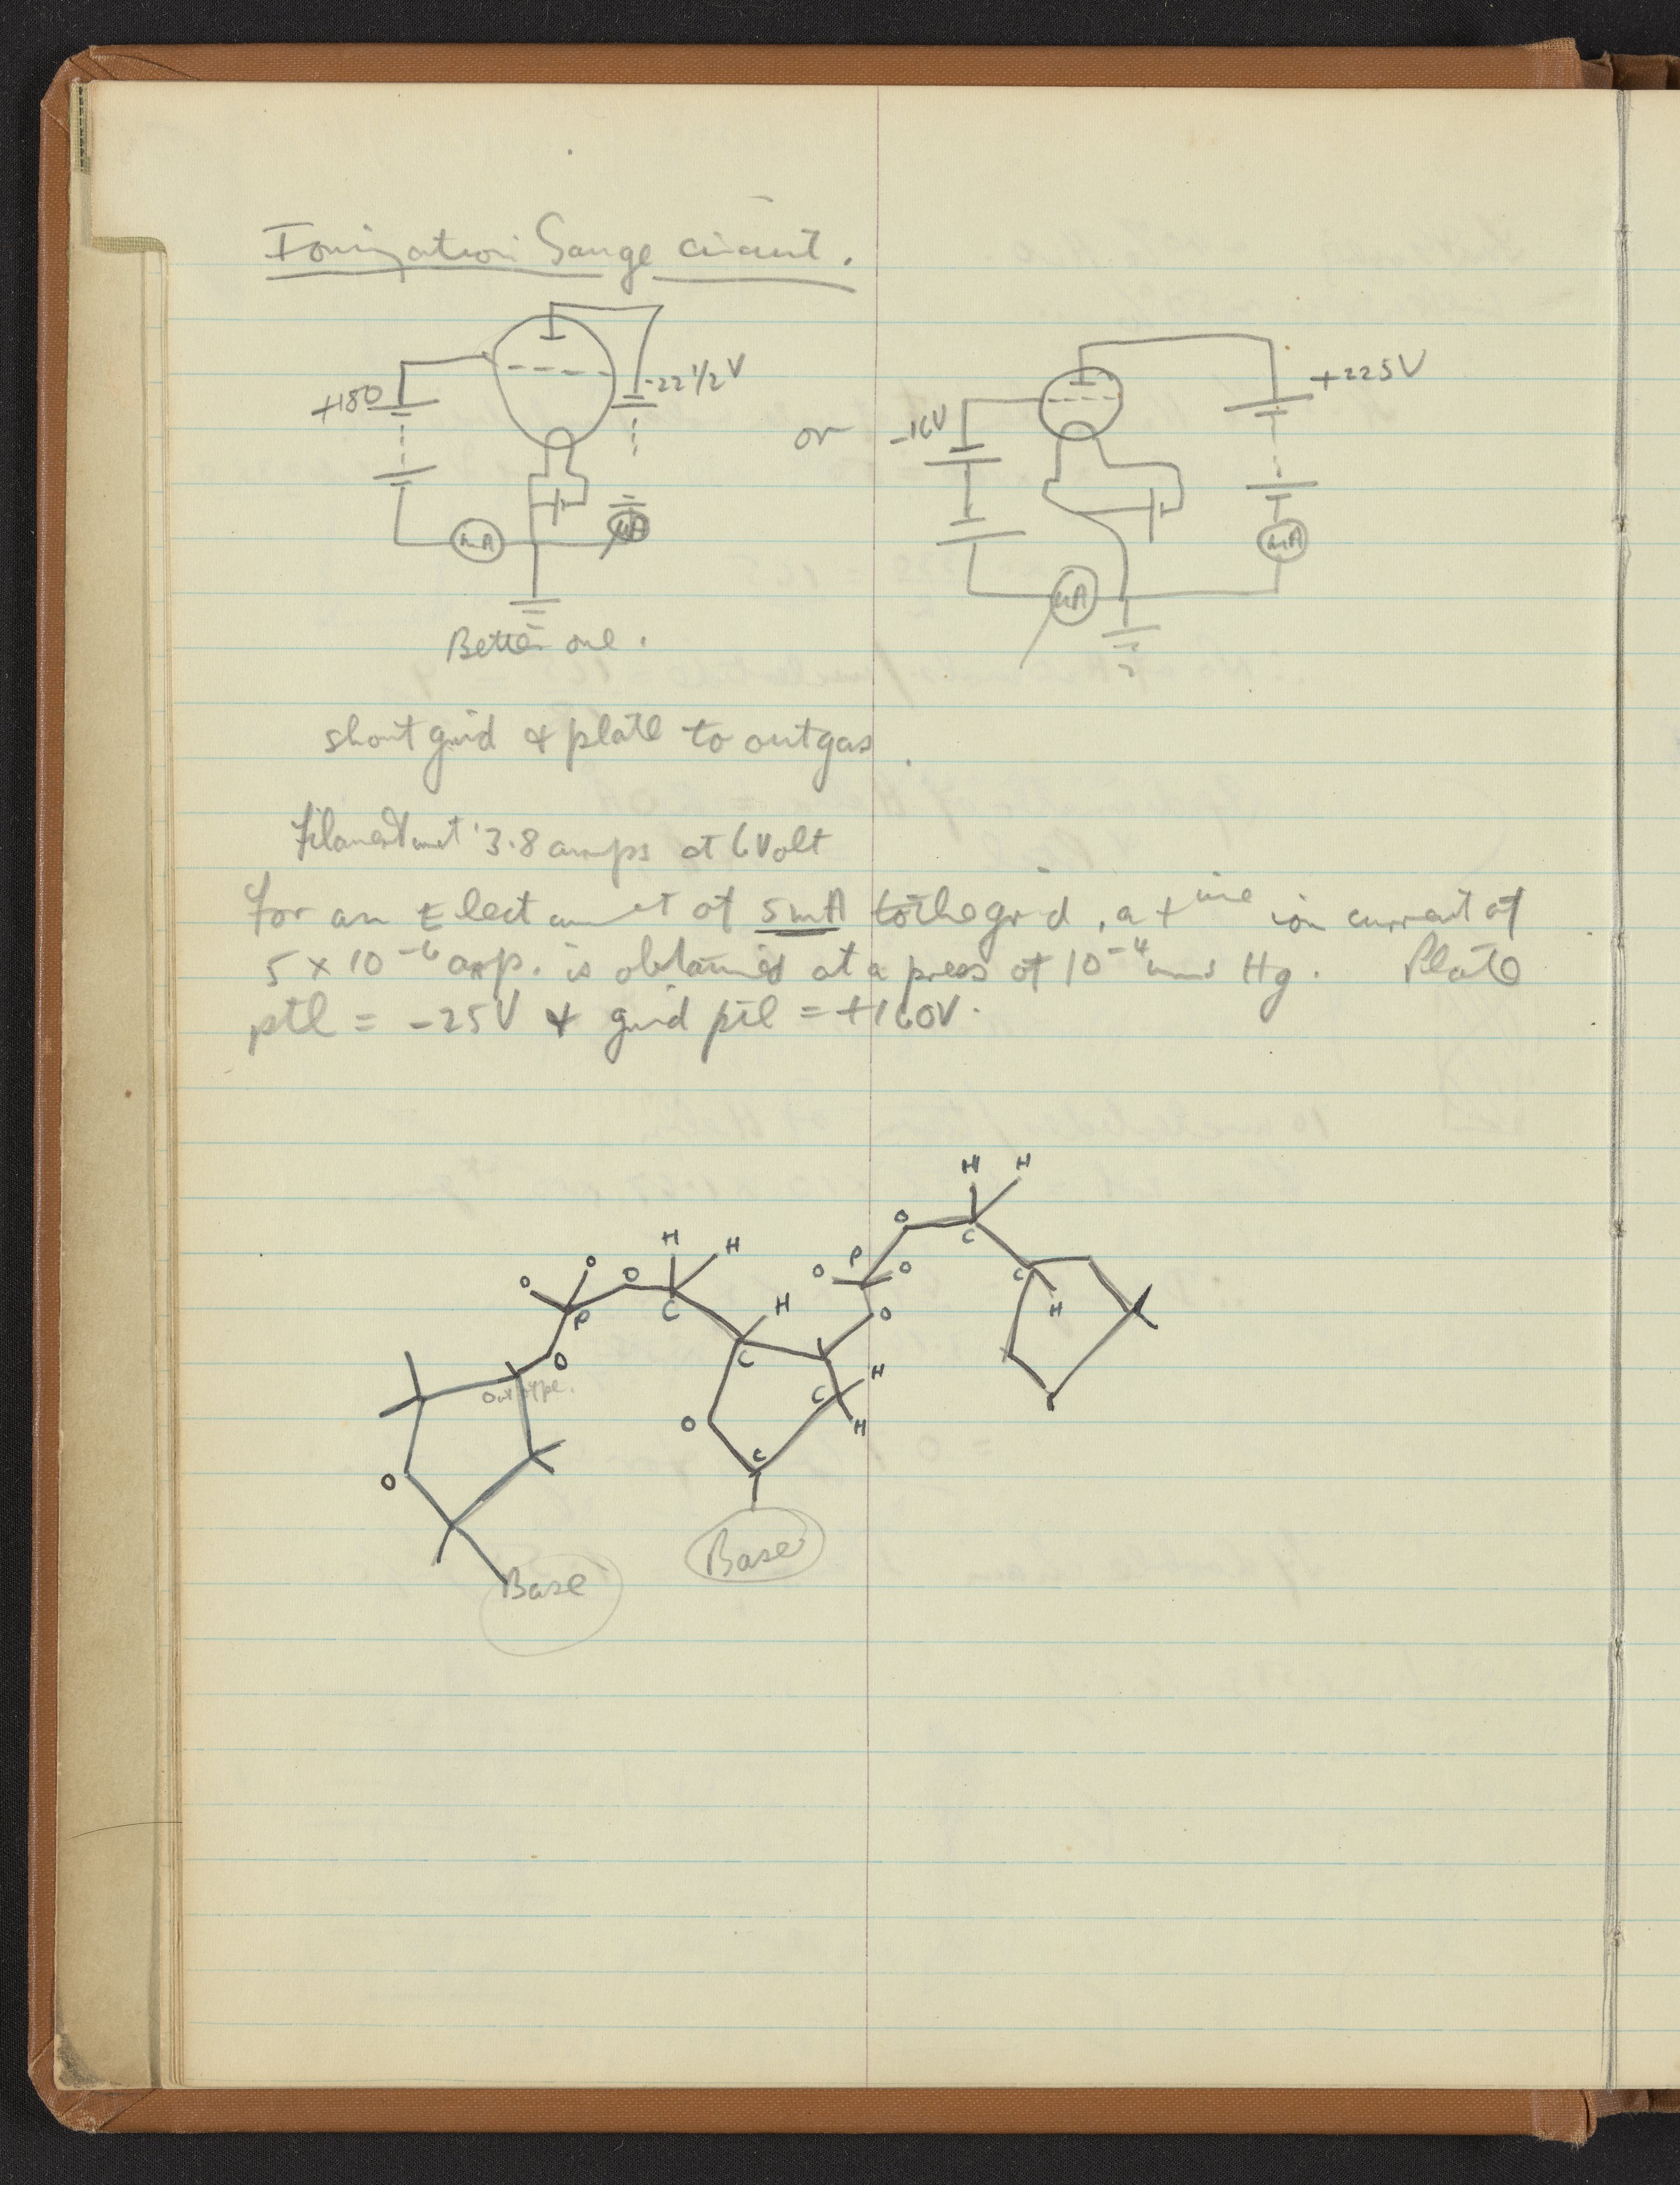 Ionization Gauge circuit.
+180
-22 1/2 V
mA
μA
or
-16V
+225V
mA
μA
Better one.
short grid & plate to outgas.
Filament 3.8 amps at 6 Volt
For an Elect current of 5mA to the grid, a +ive ion current of
5 × 10⁻⁶ amp. is obtained at a press of 10⁻⁴ mms Hg. Plate
ptl = -25V & grid ptl = +160V.
H H
O C
P
O O
C
H
O
H H
O O O C
P
O
H
C
C H
H
O
C
O
Base
Base